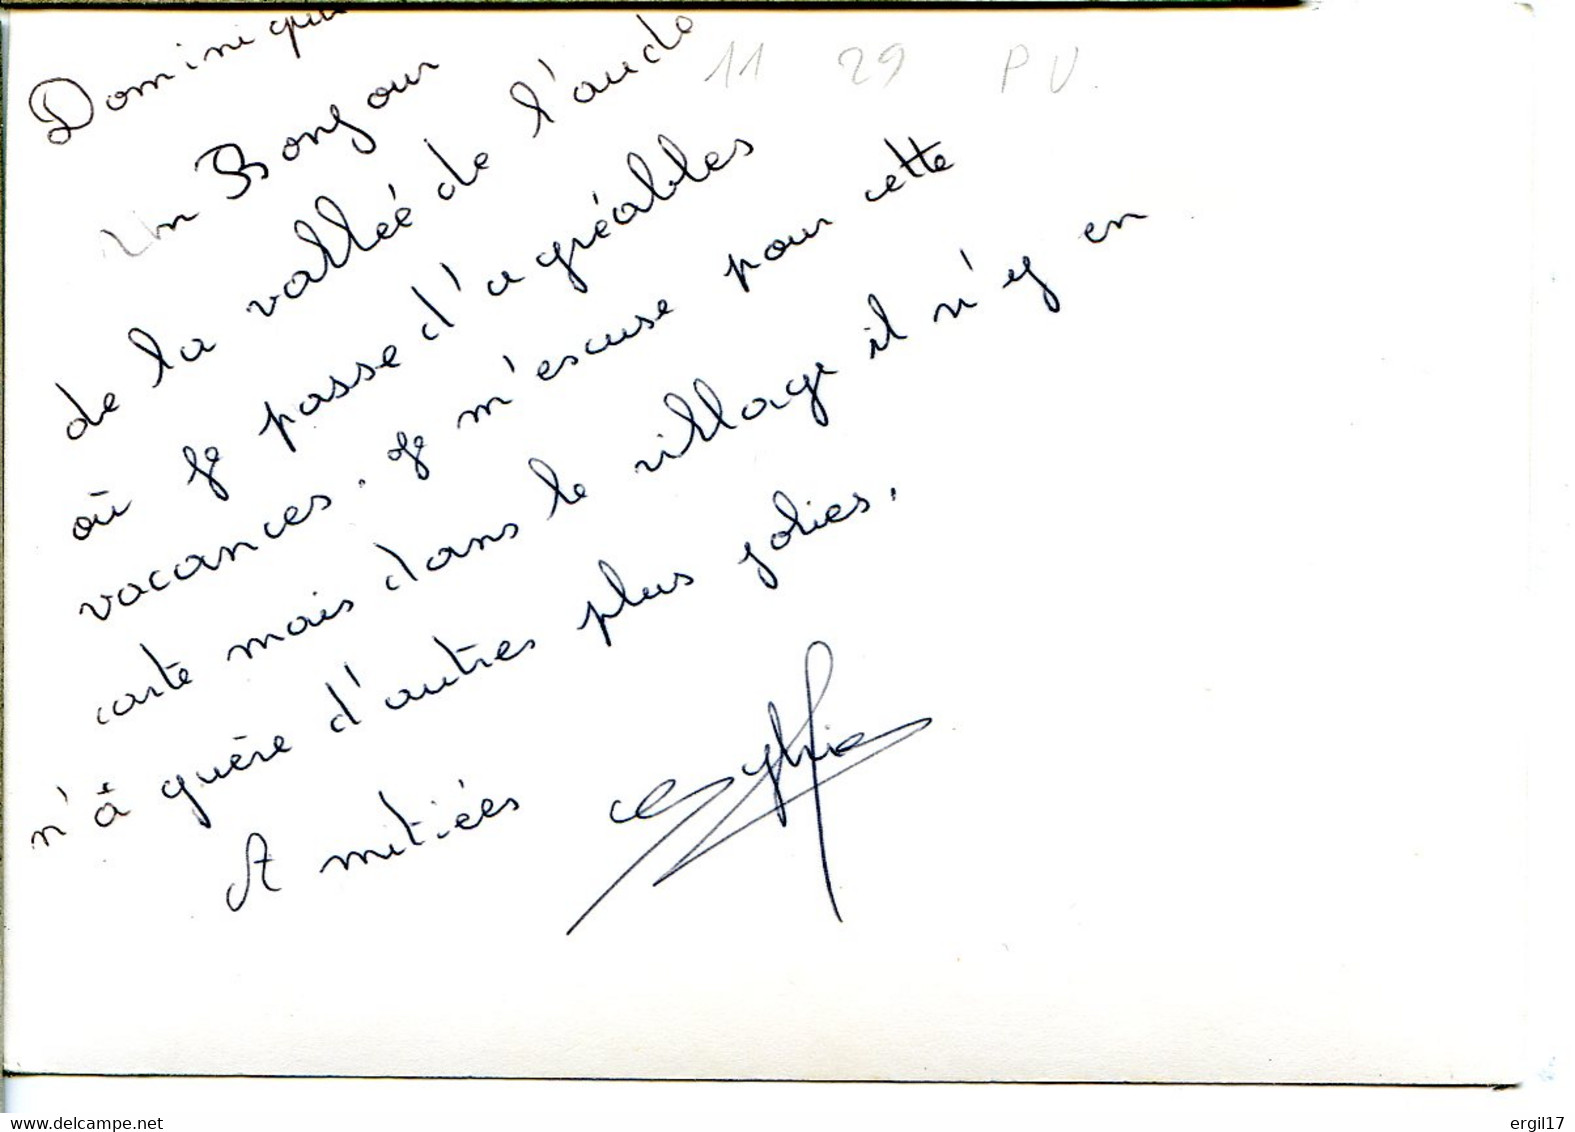 Dominique
11 29 PU.
un Bonjour
de la valléé de l'aude
où je passe d'agréables
vacances. Je m'escuse pour cette
carte mais dans le village il n'y en
n'à guère d'autres plus jolies.
A mitiées Sylvie
www.delcampe.net
ergil17